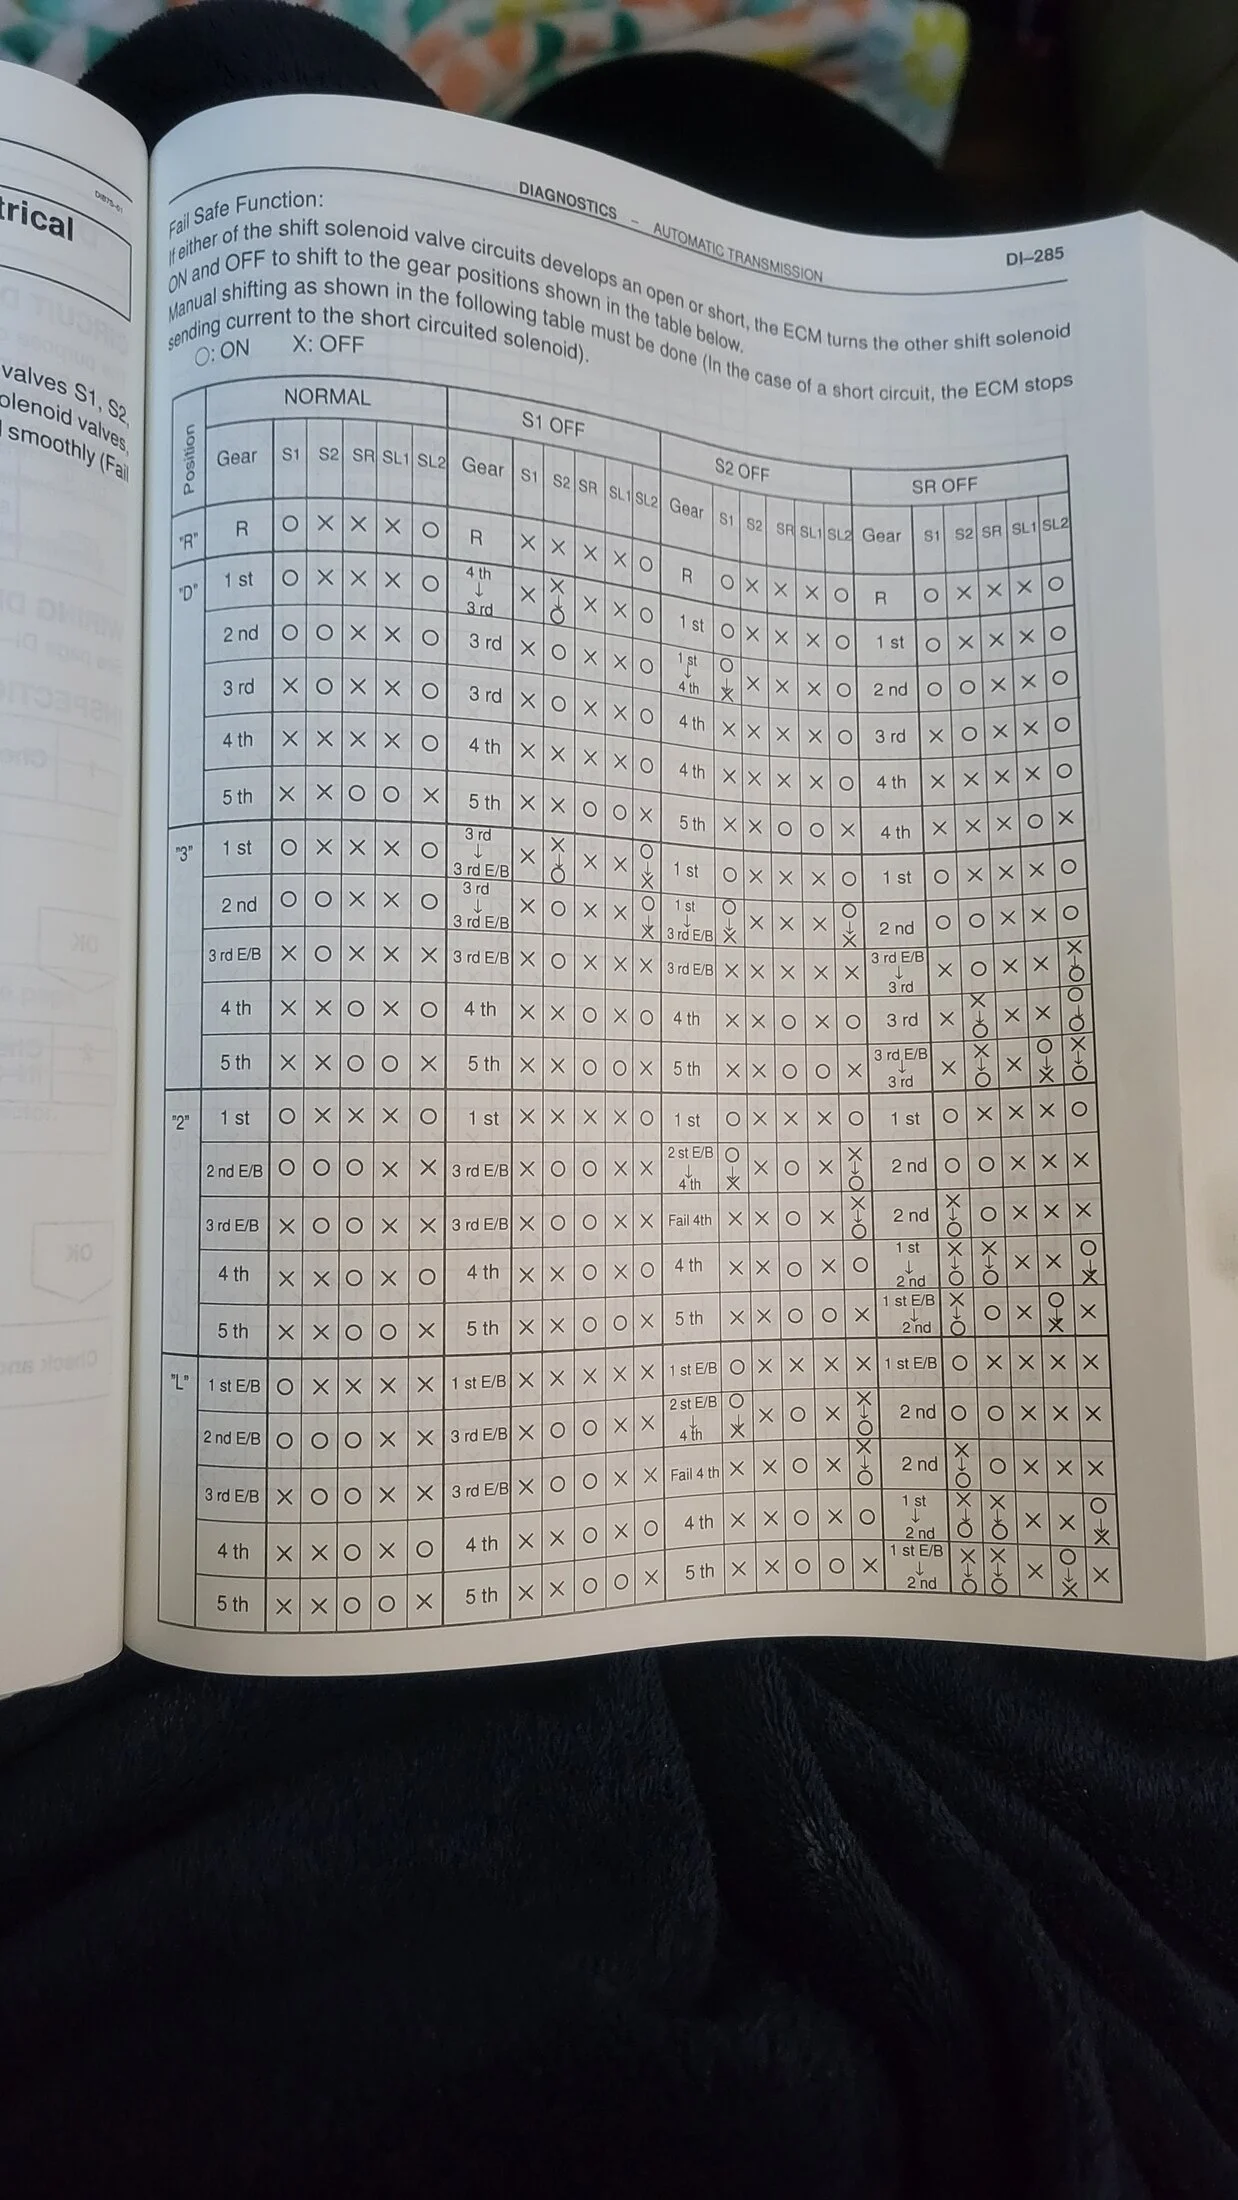 DI875-01
trical
valves S1, S2,
olenoid valves,
smoothly (Fail
DIAGNOSTICS – AUTOMATIC TRANSMISSION
DI–285
Fail Safe Function:
If either of the shift solenoid valve circuits develops an open or short, the ECM turns the other shift solenoid
ON and OFF to shift to the gear positions shown in the table below.
Manual shifting as shown in the following table must be done (In the case of a short circuit, the ECM stops
sending current to the short circuited solenoid).
○: ON X: OFF
Position NORMAL S1 OFF S2 OFF SR OFF
Gear S1 S2 SR SL1 SL2 Gear S1 S2 SR SL1 SL2 Gear S1 S2 SR SL1 SL2 Gear S1 S2 SR SL1 SL2
"R" R ○ X X X ○ R X X X X ○ R ○ X X X ○ R ○ X X X ○
"D" 1 st ○ X X X ○ 4 th ↓ 3 rd X X↓○ X X ○ 1 st ○ X X X ○ 1 st ○ X X X ○
2 nd ○ ○ X X ○ 3 rd X ○ X X ○ 1 st ↓ 4 th ○↓X X X X ○ 2 nd ○ ○ X X ○
3 rd X ○ X X ○ 3 rd X ○ X X ○ 4 th X X X X ○ 3 rd X ○ X X ○
4 th X X X X ○ 4 th X X X X ○ 4 th X X X X ○ 4 th X X X X ○
5 th X X ○ ○ X 5 th X X ○ ○ X 5 th X X ○ ○ X 4 th X X X ○ X
"3" 1 st ○ X X X ○ 3 rd ↓ 3 rd E/B X X↓○ X X ○↓X 1 st ○ X X X ○ 1 st ○ X X X ○
2 nd ○ ○ X X ○ 3 rd ↓ 3 rd E/B X ○ X X ○↓X 1 st ↓ 3 rd E/B ○↓X X X X ○↓X 2 nd ○ ○ X X ○
3 rd E/B X ○ X X X 3 rd E/B X ○ X X X 3 rd E/B X X X X X 3 rd E/B ↓ 3 rd X ○ X X X↓○
4 th X X ○ X ○ 4 th X X ○ X ○ 4 th X X ○ X ○ 3 rd X X↓○ X X ○↓○
5 th X X ○ ○ X 5 th X X ○ ○ X 5 th X X ○ ○ X 3 rd E/B ↓ 3 rd X X↓○ X ○↓X X↓○
"2" 1 st ○ X X X ○ 1 st X X X X ○ 1 st ○ X X X ○ 1 st ○ X X X ○
2 nd E/B ○ ○ ○ X X 3 rd E/B X ○ ○ X X 2 st E/B ↓ 4 th ○↓X X ○ X X↓○ 2 nd ○ ○ X X X
3 rd E/B X ○ ○ X X 3 rd E/B X ○ ○ X X Fail 4th X X ○ X X↓○ 2 nd X↓○ ○ X X X
4 th X X ○ X ○ 4 th X X ○ X ○ 4 th X X ○ X ○ 1 st ↓ 2 nd X↓○ X↓○ X X ○↓X
5 th X X ○ ○ X 5 th X X ○ ○ X 5 th X X ○ ○ X 1 st E/B ↓ 2 nd X↓○ ○ X ○↓X X
"L" 1 st E/B ○ X X X X 1 st E/B X X X X X 1 st E/B ○ X X X X 1 st E/B ○ X X X X
2 nd E/B ○ ○ ○ X X 3 rd E/B X ○ ○ X X 2 st E/B ↓ 4 th ○↓X X ○ X X↓○ 2 nd ○ ○ X X X
3 rd E/B X ○ ○ X X 3 rd E/B X ○ ○ X X Fail 4 th X X ○ X X↓○ 2 nd X↓○ ○ X X X
4 th X X ○ X ○ 4 th X X ○ X ○ 4 th X X ○ X ○ 1 st ↓ 2 nd X↓○ X↓○ X X ○↓X
5 th X X ○ ○ X 5 th X X ○ ○ X 5 th X X ○ ○ X 1 st E/B ↓ 2 nd X↓○ X↓○ X ○↓X X